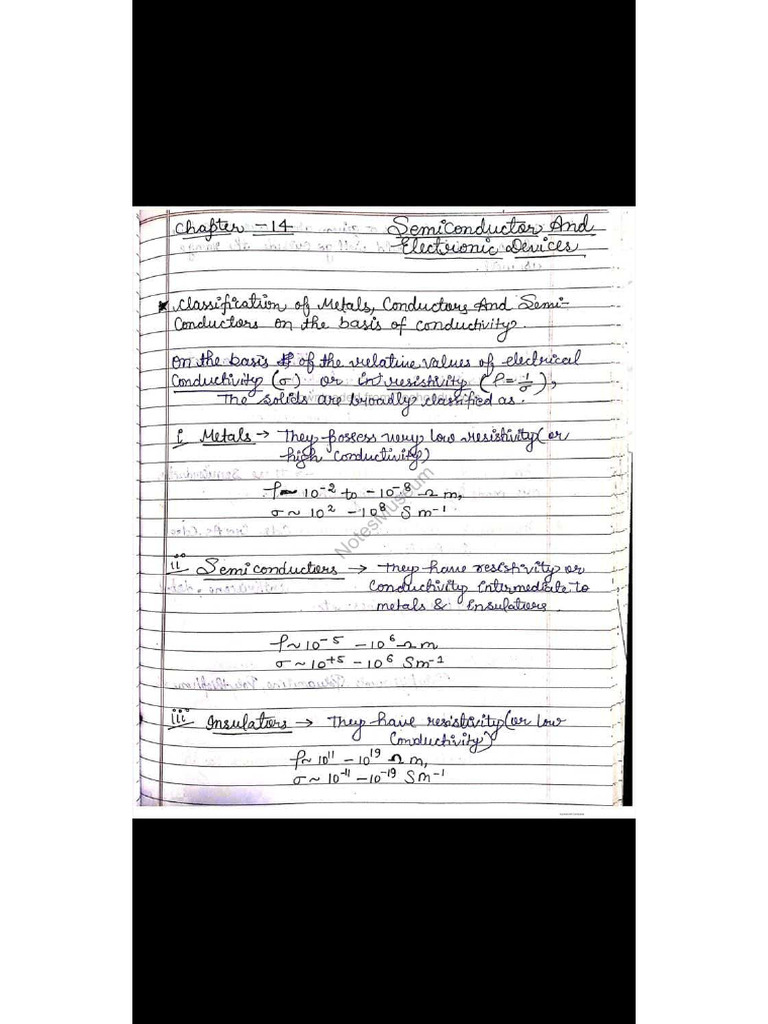 Chapter - 14 Semiconductor And
Electrionic Devices
* Classification of Metals, Conductors And Semi-
Conductors on the basis of conductivity.
On the basis of the relative values of electrical
Conductivity (σ) or int resistivity (ρ = 1/σ),
The solids are broadly classified as.
i Metals → They possess very low resistivity (or
high conductivity)
ρ ~ 10⁻² to - 10⁻⁸ Ω m,
σ ~ 10² - 10⁸ S m⁻¹
ii Semiconductors → They have resistivity or
Conductivity intermediate to
metals & Insulators.
ρ ~ 10⁻⁵ - 10⁶ Ω m
σ ~ 10⁺⁵ - 10⁶ S m⁻¹
iii Insulators → They have resistivity (or low
Conductivity)
ρ ~ 10¹¹ - 10¹⁹ Ω m,
σ ~ 10⁻¹¹ - 10⁻¹⁹ S m⁻¹
NotesMuseum